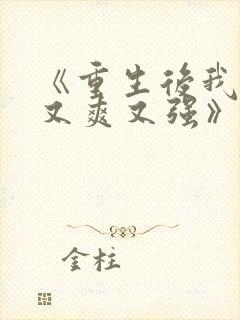 《重生後我
又爽又强》
金柱